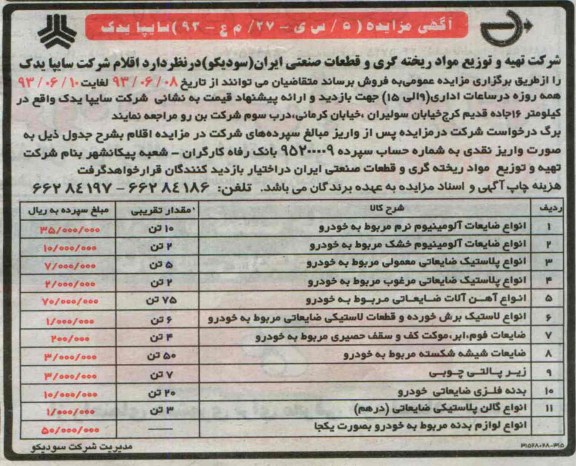 آگهی مزایده (۵/س ی-۲۷/م ع-۹۳) سایپا یدک
شرکت تهیه و توزیع مواد ریخته گری و قطعات صنعتی ایران(سودیکو)درنظردارد اقلام شرکت سایپا یدک
را ازطریق برگزاری مزایده عمومی به فروش برساند متقاضیان می توانند از تاریخ ۹۳/۰۶/۰۸ لغایت ۹۳/۰۶/۱۰
همه روزه درساعات اداری(۹الی ۱۵) جهت بازدید و ارائه پیشنهاد قیمت به نشانی شرکت سایپا یدک واقع در
کیلومتر ۱۶جاده قدیم کرج خیابان سولیران ،خیابان کرمانی،درب سوم شرکت بن رو مراجعه نمایند
برگ درخواست شرکت درمزایده پس از واریز مبالغ سپرده های شرکت در مزایده اقلام بشرح جدول ذیل به
صورت واریز نقدی به شماره حساب سپرده ۹۵۲۰۰۰۰۹ بانک رفاه کارگران - شعبه پیکانشهر بنام شرکت
تهیه و توزیع مواد ریخته گری و قطعات صنعتی ایران دراختیار بازدید کنندگان قرارخواهدگرفت
هزینه چاپ آگهی و اسناد مزایده به عهده برندگان می باشد. تلفن: ۶۶۲۸۴۱۸۶ - ۶۶۲۸۴۱۹۷
ردیف شرح کالا مقدار تقریبی مبلغ سپرده به ریال
۱ انواع ضایعات آلومینیوم نرم مربوط به خودرو ۱۰ تن ۳۵/۰۰۰/۰۰۰
۲ انواع ضایعات آلومینیوم خشک مربوط به خودرو ۲ تن ۱۰/۰۰۰/۰۰۰
۳ انواع پلاستیک ضایعاتی معمولی مربوط به خودرو ۵ تن ۷/۰۰۰/۰۰۰
۴ انواع پلاستیک ضایعاتی مرغوب مربوط به خودرو ۲ تن ۲/۰۰۰/۰۰۰
۵ انواع آهن آلات ضایعاتی مربوط به خودرو ۷۵ تن ۷۰/۰۰۰/۰۰۰
۶ انواع لاستیک برش خورده و قطعات لاستیکی ضایعاتی مربوط به خودرو ۶ تن ۱/۰۰۰/۰۰۰
۷ ضایعات فوم،ابر،موکت کف و سقف حصیری مربوط به خودرو ۴ تن ۲۰۰/۰۰۰
۸ ضایعات شیشه شکسته مربوط به خودرو ۵۰ تن ۳/۰۰۰/۰۰۰
۹ زیر پالتی چوبی ۷ تن ۳/۰۰۰/۰۰۰
۱۰ بدنه فلزی ضایعاتی خودرو ۲۰ تن ۱۰/۰۰۰/۰۰۰
۱۱ انواع گالن پلاستیکی ضایعاتی (درهم) ۳ تن ۱/۰۰۰/۰۰۰
انواع لوازم بدنه مربوط به خودرو بصورت یکجا —— ۵۰/۰۰۰/۰۰۰
مدیریت شرکت سودیکو